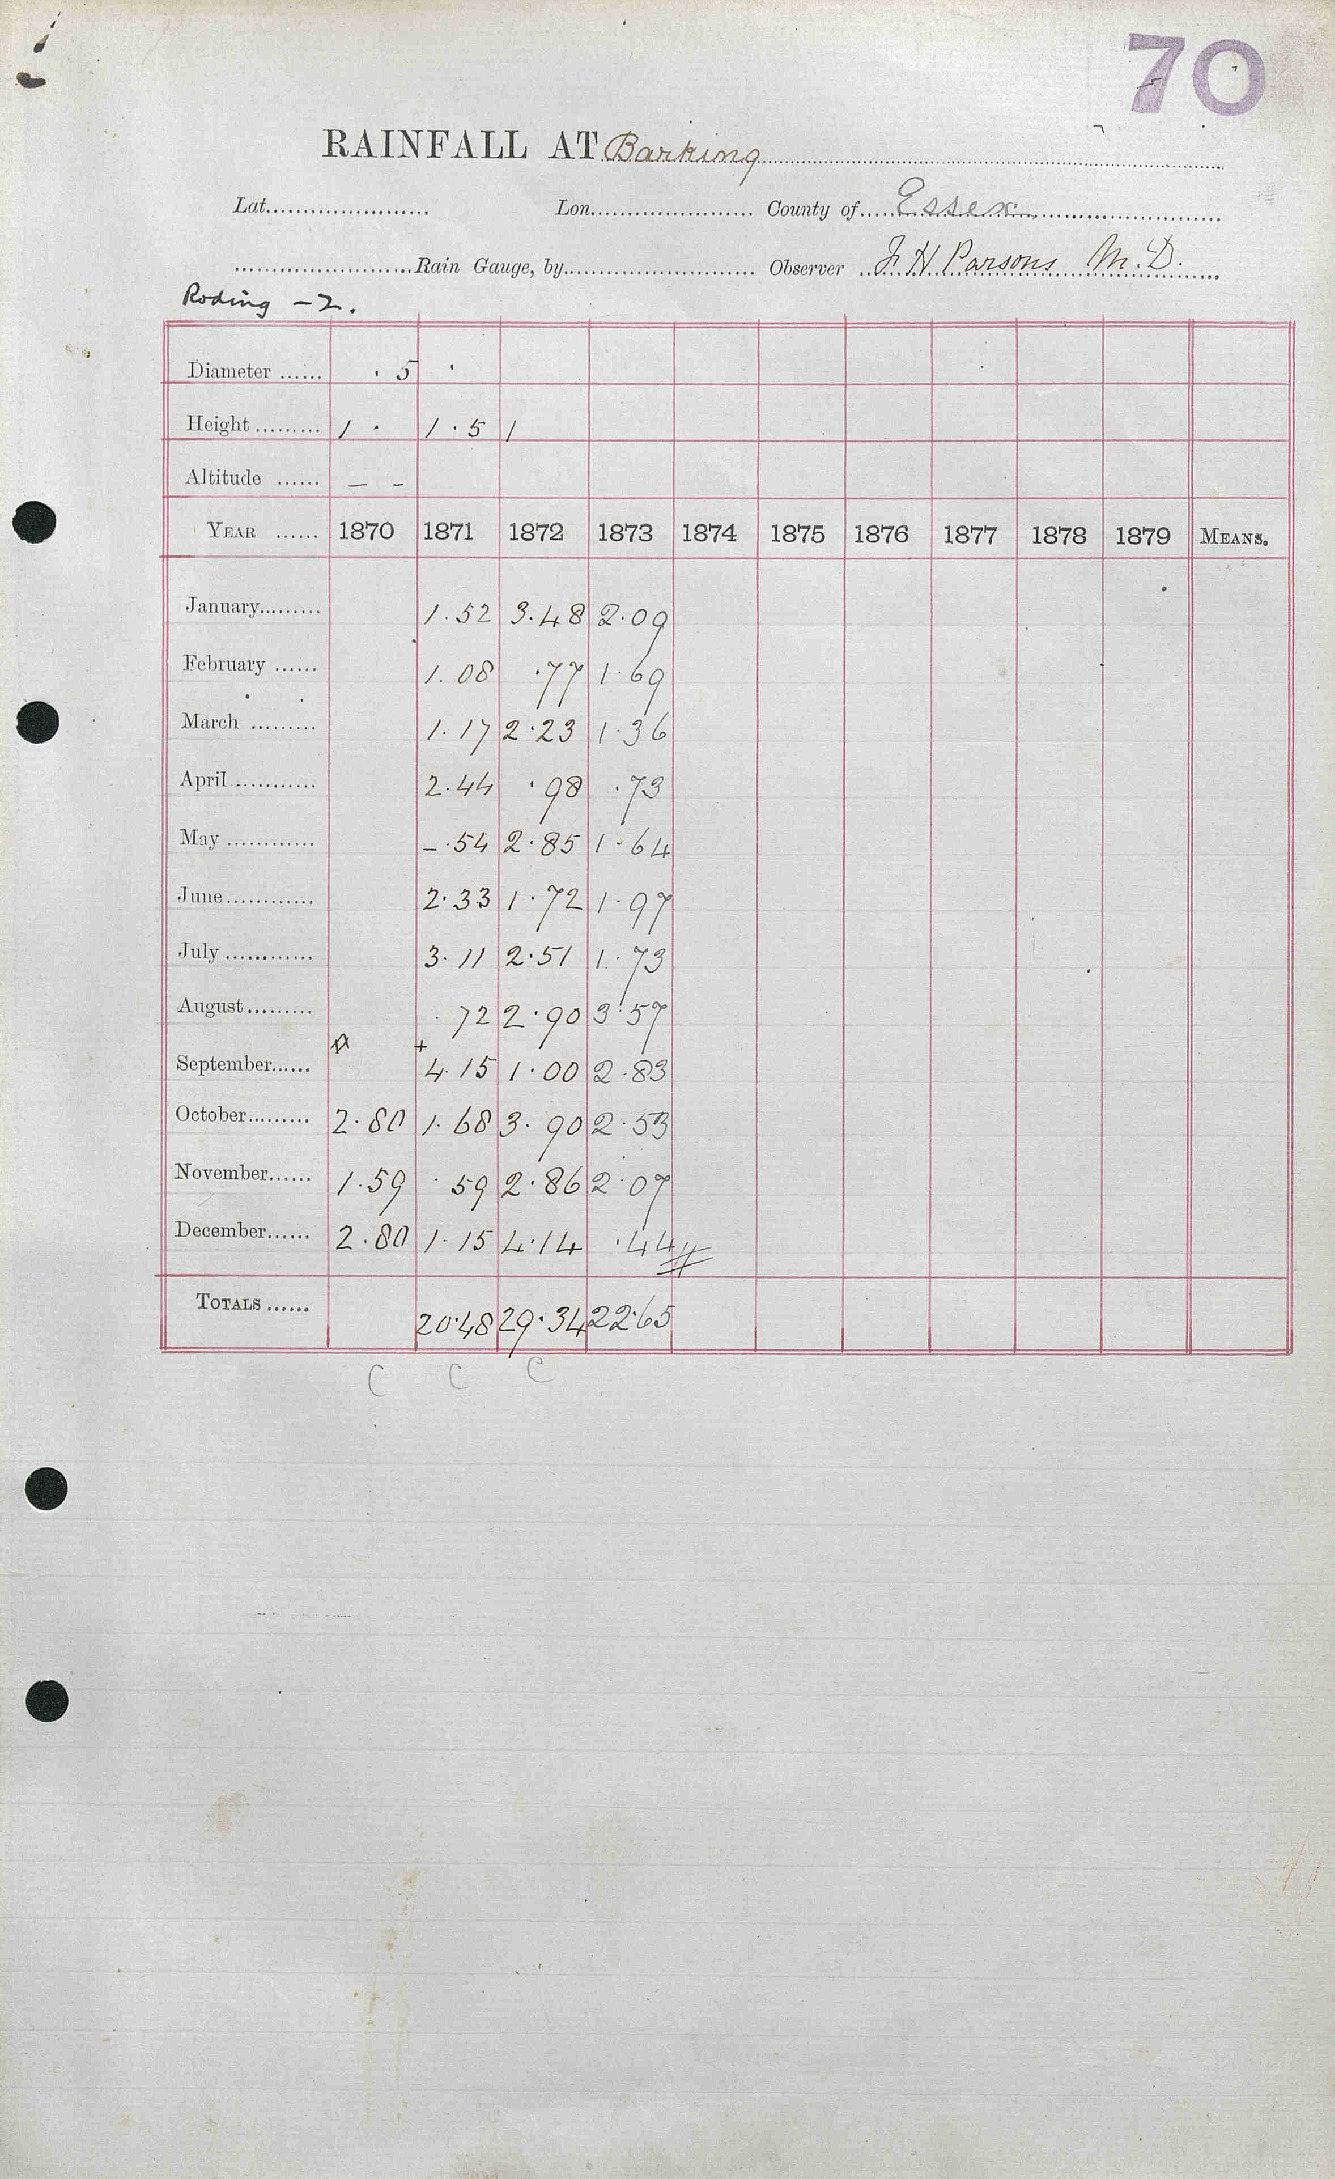 70
RAINFALL AT Barking
Lat. Lon. County of Essex
Rain Gauge, by Observer J H Parsons M.D.
Roding -2.
Diameter ...... · 5 ·
Height ......... 1 · 1 · 5 1
Altitude ...... – –
YEAR ...... 1870 1871 1872 1873 1874 1875 1876 1877 1878 1879 MEANS.
January......... 1.52 3.48 2.09
February ...... 1.08 .77 1.69
March ......... 1.17 2.23 1.36
April ............ 2.44 .98 .73
May ............ –.54 2.85 1.64
June............ 2.33 1.72 1.97
July ............ 3.11 2.51 1.73
August......... .72 2.90 3.57
September...... + 4.15 1.00 2.83
October......... 2.80 1.68 3.90 2.53
November...... 1.59 .59 2.86 2.07
December...... 2.80 1.15 4.14 .44
TOTALS ...... 20.48 29.34 22.65
C C C